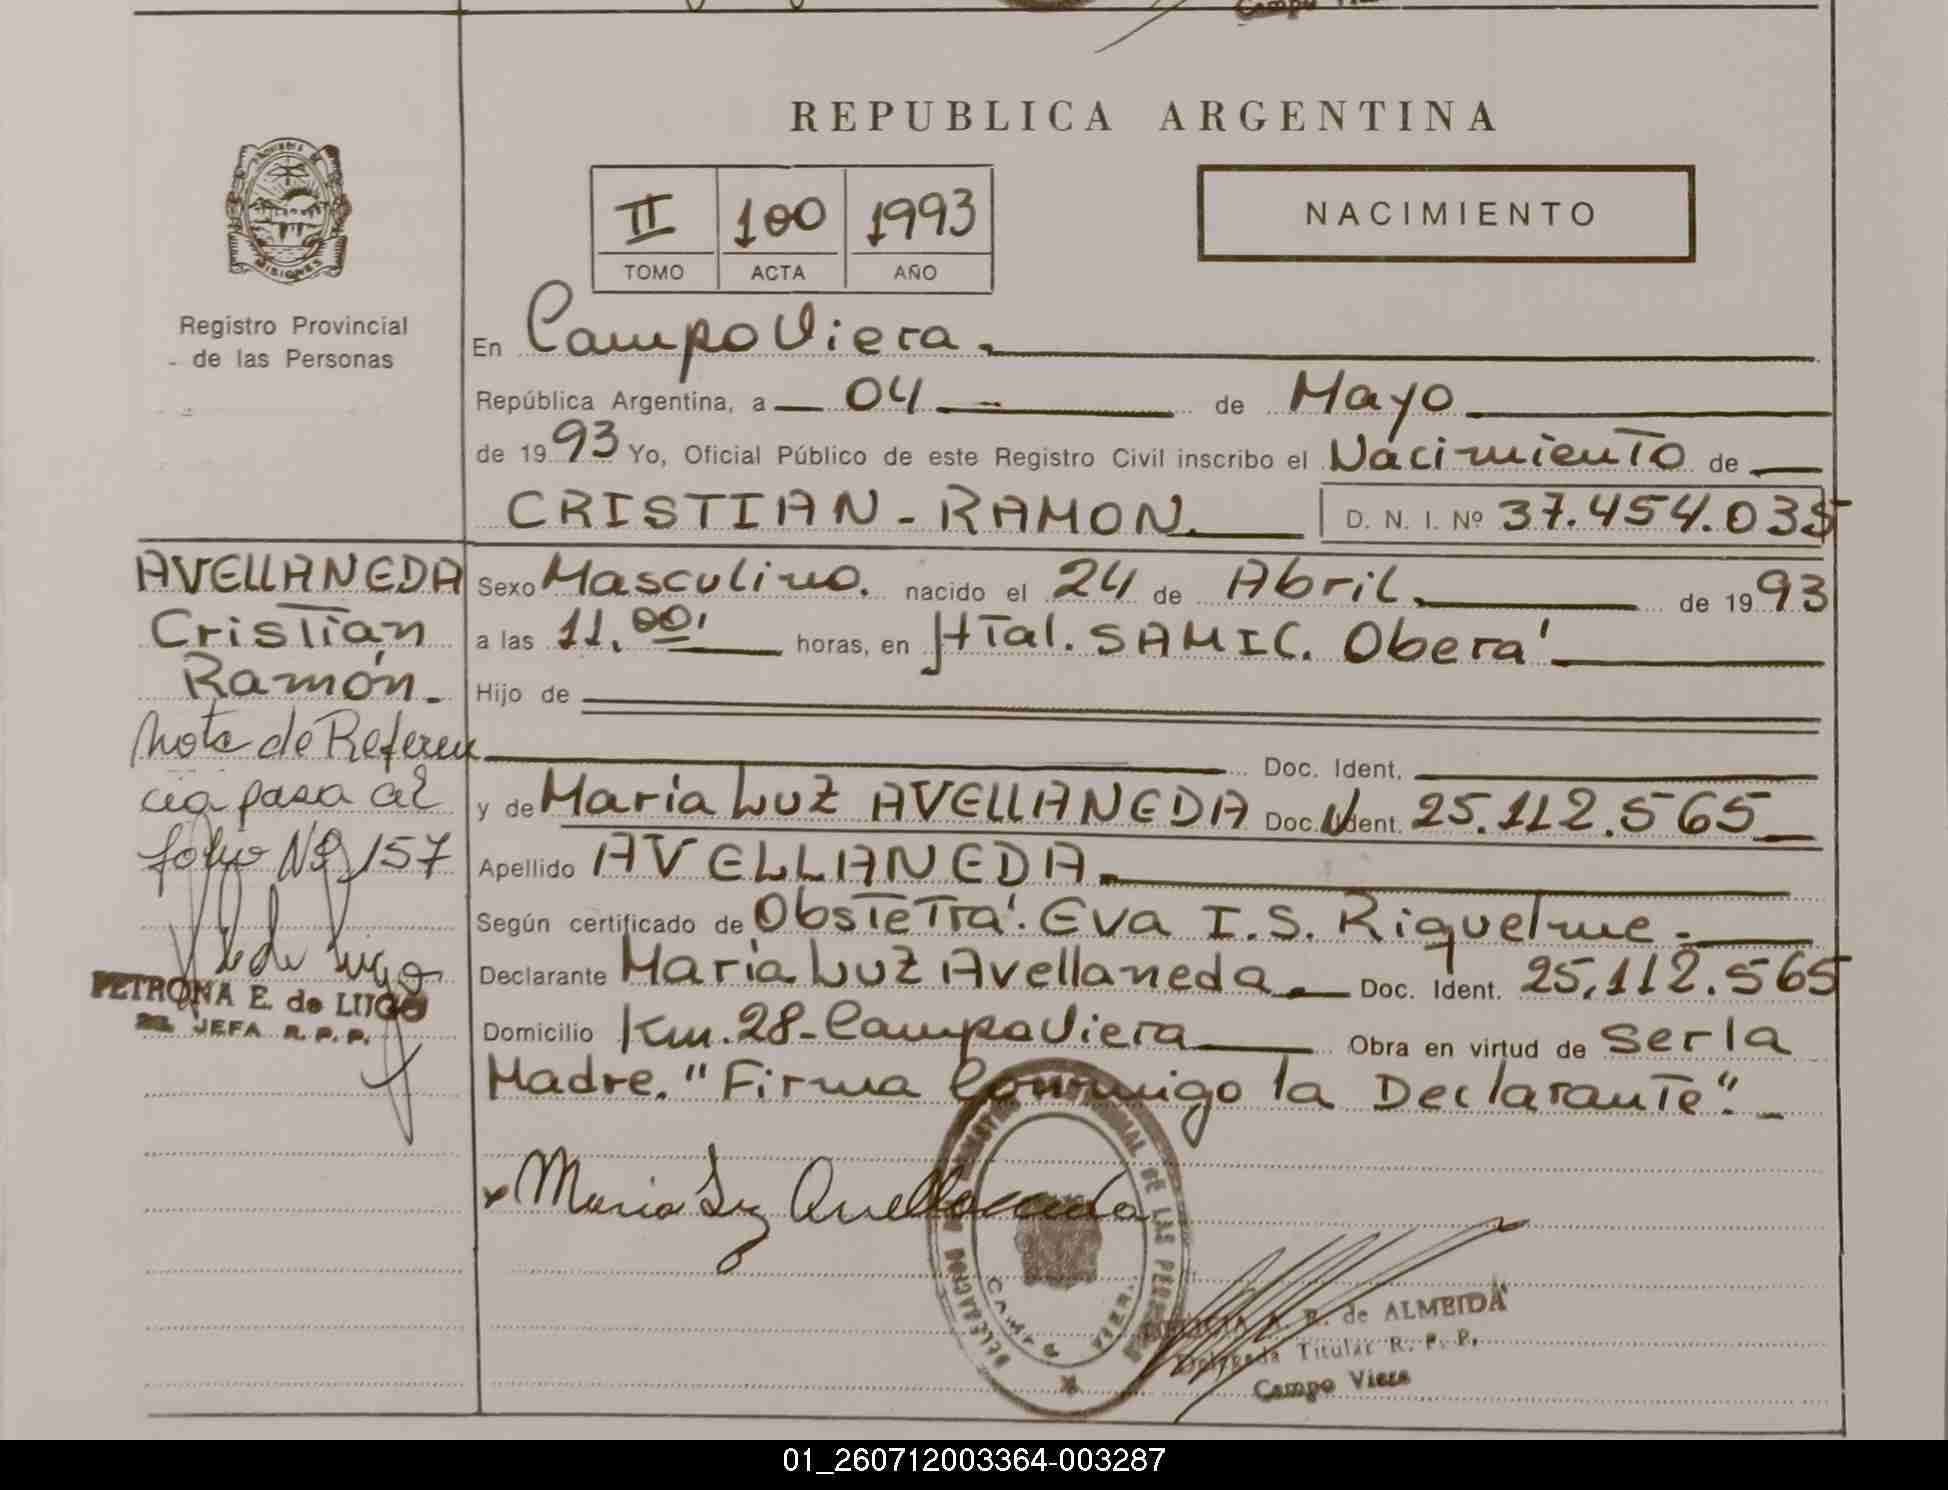 REPUBLICA ARGENTINA
II 100 1993
TOMO ACTA AÑO
NACIMIENTO
MISIONES
Registro Provincial
de las Personas
En Campo Viera.
República Argentina, a 04 de Mayo
de 1993 Yo, Oficial Público de este Registro Civil inscribo el Nacimiento de
CRISTIAN - RAMON. D. N. I. Nº 37.454.035
AVELLANEDA
Cristian
Ramón.
Nota de Referen
cia pasa al
folio Nº 157
PETRONA E. de LUGO
JEFA R. P. P.
Sexo Masculino. nacido el 24 de Abril. de 1993
a las 11.00' horas, en Htal. SAMIC. Oberá
Hijo de
Doc. Ident.
y de María Luz AVELLANEDA Doc. Ident. 25.112.565
Apellido AVELLANEDA.
Según certificado de Obstetra'. Eva I. S. Riquelme.
Declarante María Luz Avellaneda. Doc. Ident. 25.112.565
Domicilio Km. 28 - Campo Viera Obra en virtud de ser la
Madre. "Firma Conmigo la Declarante".
Maria Luz Avellaneda
DELEGACION DE LAS
CAMPO VIERA
de ALMEIDA
Delegada Titular R. P. P.
Campo Viera
01_260712003364-003287